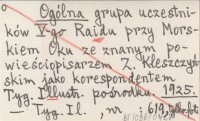 Ogólna grupa uczestni-
ków V-go Raidu przy Mors-
kiem Oku ze znanym po-
wieściopisarzem Z. Kleszczyń-
skim jako korespondentem
Tyg. Illustr. pośrodku. 1925.
— Tyg. Il., nr 619,